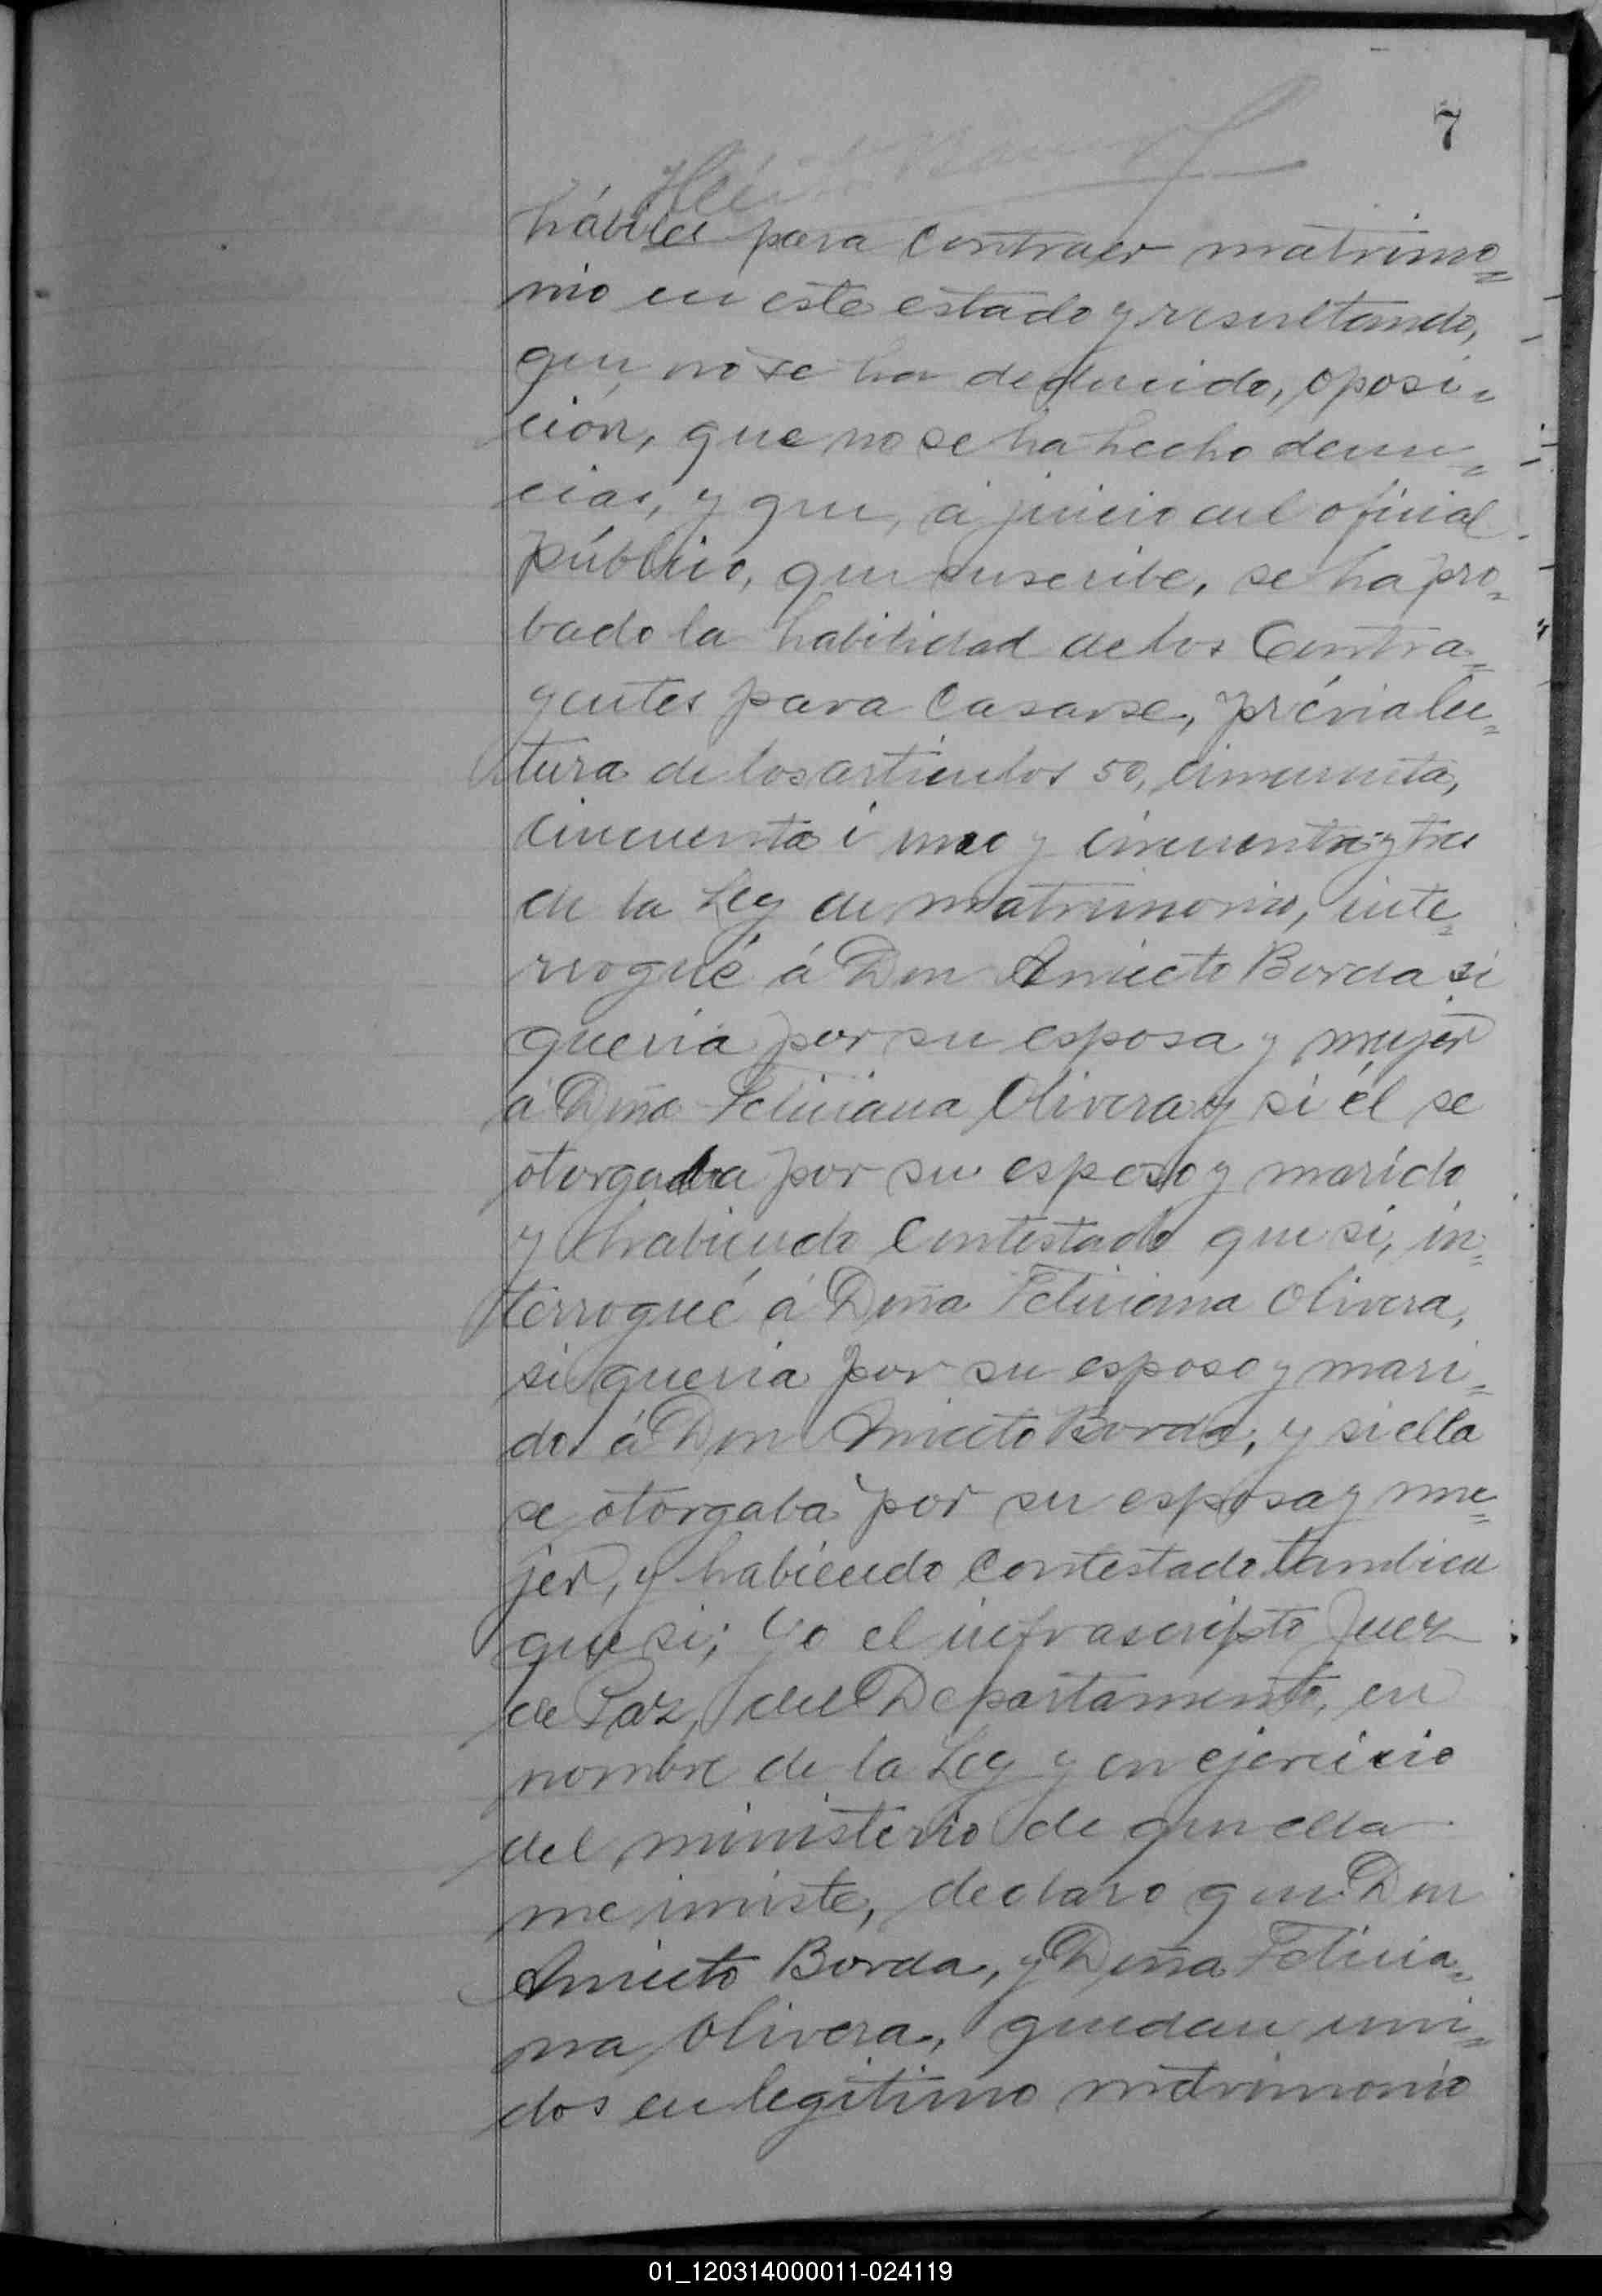 7
hábiles para contraer matrimo=
nio en este estado y resultando,
que, no se ha deducido, oposi=
ción, que no se ha hecho denun=
cias, y que, á juicio del oficial
público, que suscribe, se ha pro=
bado la habilidad de los Contra=
yentes para casarse, prévia lec=
tura de los artículos 50, cincuenta,
cincuenta i uno y cincuenta y tres
de la Ley de matrimonio, inte=
rrogué á Don Aniceto Borda si
queria por su esposa y mujer
á Doña Feliciana Olivera y si él se
otorgaba por su esposo y marido
y habiendo contestado que si, in=
terrogué á Doña Feliciana Olivera,
si queria por su esposo y mari=
do á Don Aniceto Borda, y si ella
se otorgaba por su esposa y mu=
jer, y habiendo contestado tambien
que si; Yo el infrascripto Juez
de Paz, del Departamento, en
nombre de la Ley y en ejercicio
del ministerio de que ella
me inviste, declaro que Don
Aniceto Borda, y Doña Felicia=
na Olivera, quedan uni=
dos en legítimo matrimonio
01_120314000011-024119